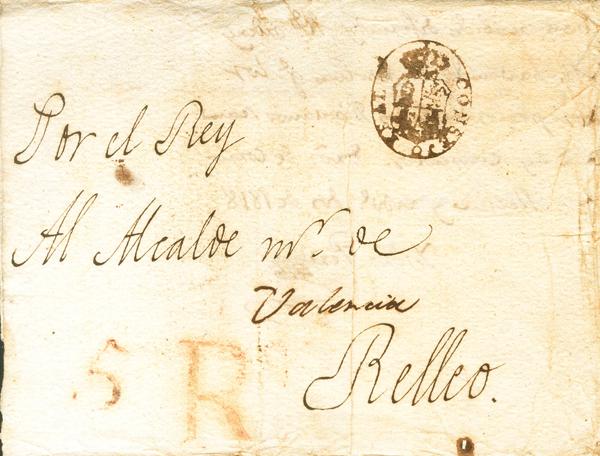 Por el Rey
Al Alcalde mr. de
Valencia
Relleo.
5 R